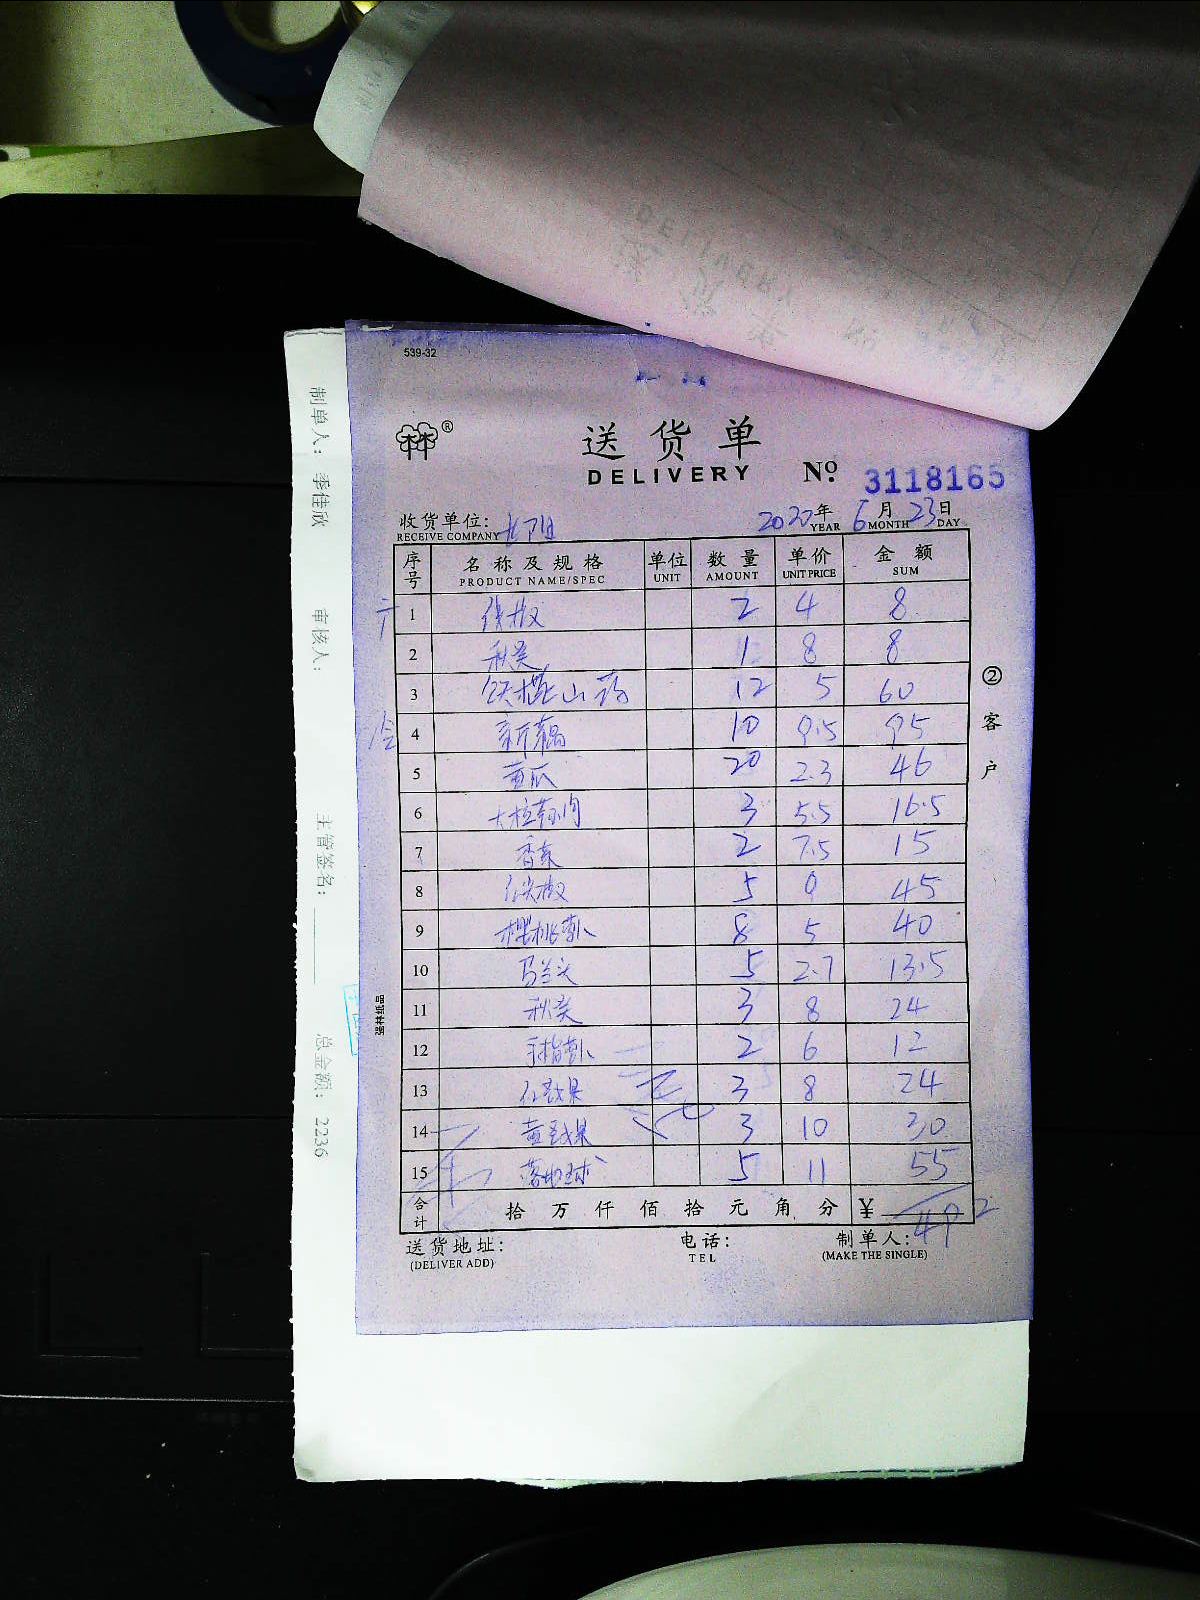 539-32
林®
送货单
DELIVERY No. 3118165
收货单位:
RECEIVE COMPANY
2020年 6月 23日
YEAR MONTH DAY
序号 名称及规格 单位 数量 单价 金额
PRODUCT NAME/SPEC UNIT AMOUNT UNIT PRICE SUM
1 2 4 8
2 秋葵 1 8 8
3 铁棍山药 12 5 60
4 新藕 10 9.5 95
5 黄瓜 20 2.3 46
6 3 5.5 16.5
7 香菜 2 7.5 15
8 尖椒 5 9 45
9 樱桃萝卜 8 5 40
10 马兰头 5 2.7 13.5
11 秋葵 3 8 24
12 手指萝卜 2 6 12
13 3 8 24
14 3 10 30
15 5 11 55
合计 拾 万 仟 佰 拾 元 角 分 ¥ 492
送货地址: 电话: 制单人:
(DELIVER ADD) TEL (MAKE THE SINGLE)
②客户
强林纸品
制单人: 季佳欣 审核人: 主管签名: 总金额: 2236